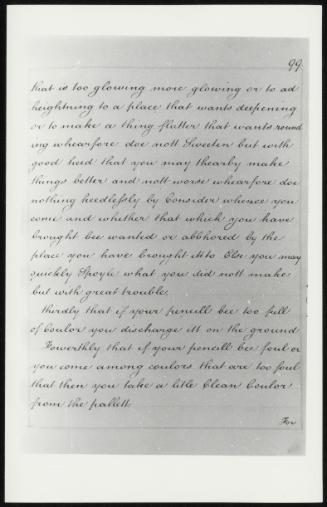 99
that is too glowing more glowing or to ad
heightning to a place that wants deepening
or to make a thing flatter that wants round
ing whearfore doe nott Sweeten but with
good heed that you may thearby make
things better and nott worse whearfore doe
nothing heedlessly by Consider whence you
come and whether that which you have
brought bee wanted or abbhored by the
place you have brought itt to Else you may
quickly Spoyle what you did nott make
but with great trouble.
thirdly that if your pencill bee too full
of Coulor you discharge itt on the ground
Fowerthly that if your pencill bee foul or
you come among coulors that are too foul
that then you take a litle Clean Coulor
from the pallett.
For